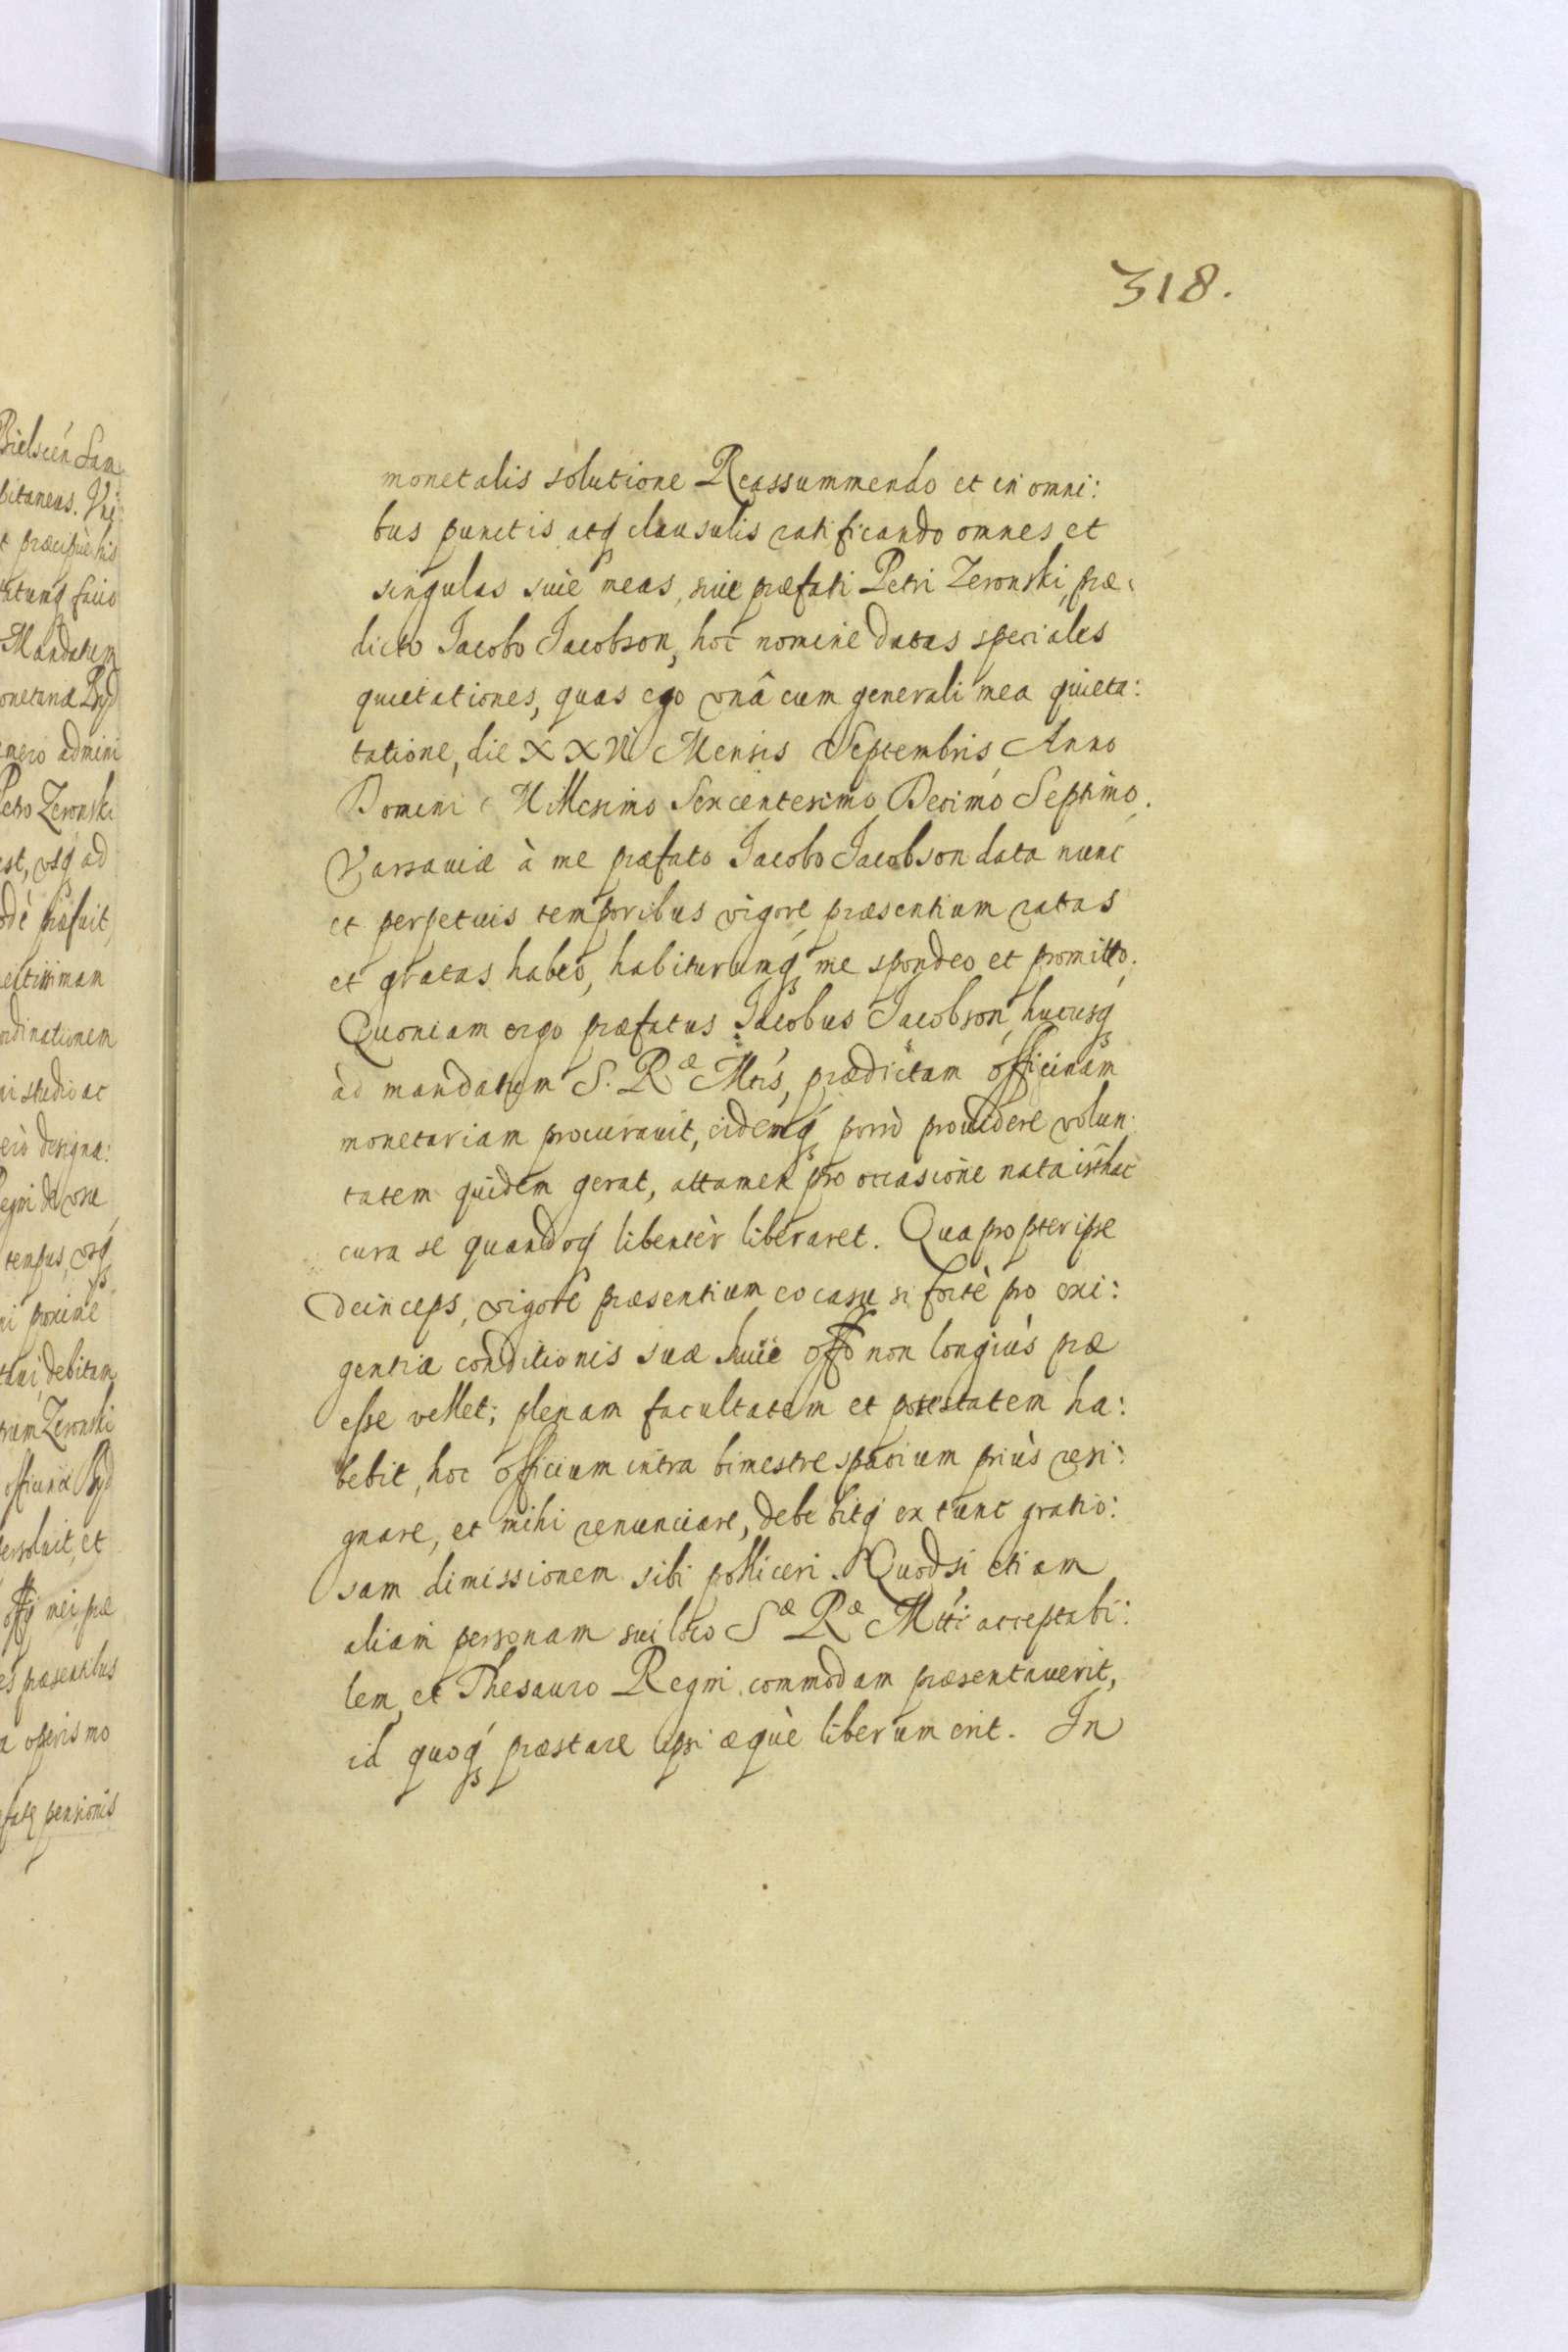 318.
monetalis solutione Reassummendo et in omni:
bus punctis atq́ clausulis ratificando omnes et
singulas siue meas, siue præfati Petri Zeronski, præ:
dicto Jacobo Jacobson, hoc nomine datas speciales
quietationes, quas ego vnâ cum generali mea quieta:
tatione, die XXVI Mensis Septembris, Anno
Domini Millesimo Sexcentesimo Decimo Septimo.
Varsauiæ à me præfato Jacobo Jacobson data nunc
et perpetuis temporibus vigore præsentium ratas
et gratas habeo, habiturumq́ me spondeo et promitto.
Quoniam ergo præfatus Jacobus Jacobson, hucusq́
ad mandatum S. Ræ Mtis, prædictam officinam
monetariam procurauit, eidemq́ porrò prouidere volun:
tatem quidem gerat, attamen pro occasione nata isthac
cura se quandoq́ libentèr liberaret. Quapropter ipse
deinceps, vigore præsentium eo casu si fortè pro exi:
gentia conditionis suæ huic offo non longiùs præ
esse vellet; plenam facultatem et potestatem ha:
bebit, hoc officium intra bimestre spatium priùs resi:
gnare, et mihi renunciare, debebitq́ ex tunc gratio:
sam dimissionem sibi polliceri. Quodsi etiam
aliam personam sui loco Sæ Ræ Mtti acceptabi:
lem, et Thesauro Regni commodam præsentauerit,
id quoq́ præstare ipsi æquè liberum erit. In